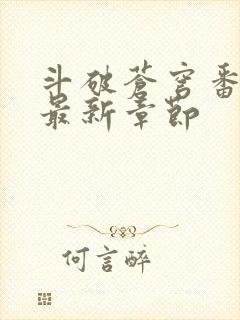 斗破苍穹番
最新章节
何言醉